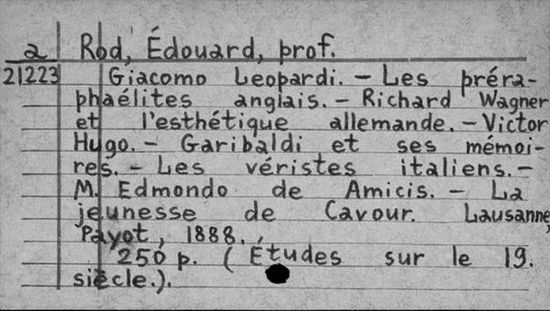 a Rod, Édouard, prof.
21223 Giacomo Leopardi. – Les préra-
phaélites anglais. – Richard Wagner
et l'esthétique allemande. – Victor
Hugo. – Garibaldi et ses mémoi-
res. – Les véristes italiens. –
M. Edmondo de Amicis. – La
jeunesse de Cavour. Lausanne,
Payot, 1888.,
250 p. (Études sur le 19.
siècle.).